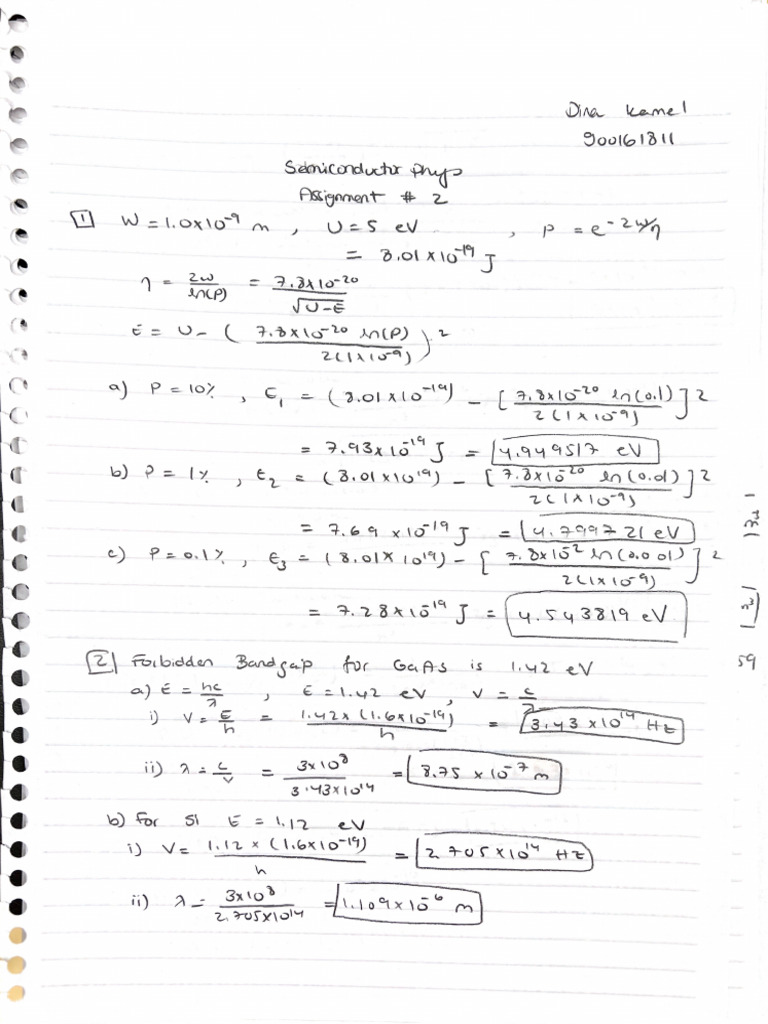 Dina Kamel
900161811
Semiconductor Phys
Assignment # 2
1 W = 1.0x10^-9 m , U = 5 eV , P = e^-2W/η
= 8.01 x 10^-19 J
η = 2w/ln(P) = 7.8x10^-20/√U-E
E = U - ( 7.8x10^-20 ln(P)/2(1x10^-9) )^2
a) P = 10% , E1 = (8.01x10^-19) - [ 7.8x10^-20 ln(0.1)/2(1x10^-9) ]^2
= 7.93x10^-19 J = 4.949517 eV
b) P = 1% , E2 = (8.01x10^19) - [ 7.8x10^-20 ln(0.01)/2(1x10^-9) ]^2
= 7.69 x10^-19 J = 4.799721 eV
c) P = 0.1% , E3 = (8.01x10^19) - [ 7.8x10^-2 ln(0.001)/2(1x10^-9) ]^2
= 7.28x10^-19 J = 4.543819 eV
2 Forbidden Bandgap for GaAs is 1.42 eV
a) E = hc/λ , E = 1.42 eV , V = c/λ
i) V = E/h = 1.42x (1.6x10^-19)/h = 3.43 x10^14 Hz
ii) λ = c/v = 3x10^8/3.43x10^14 = 8.75 x 10^-7 m
b) For Si E = 1.12 eV
i) V = 1.12 x (1.6x10^-19)/h = 2.705x10^14 Hz
ii) λ = 3x10^8/2.705x10^14 = 1.109x10^-6 m
59